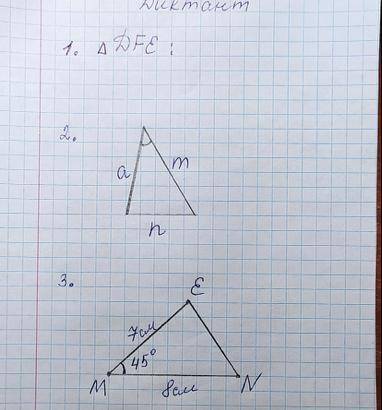 Диктант
1. △ DFE :
2.
a m
n
3.
E
7см
45°
M 8см N